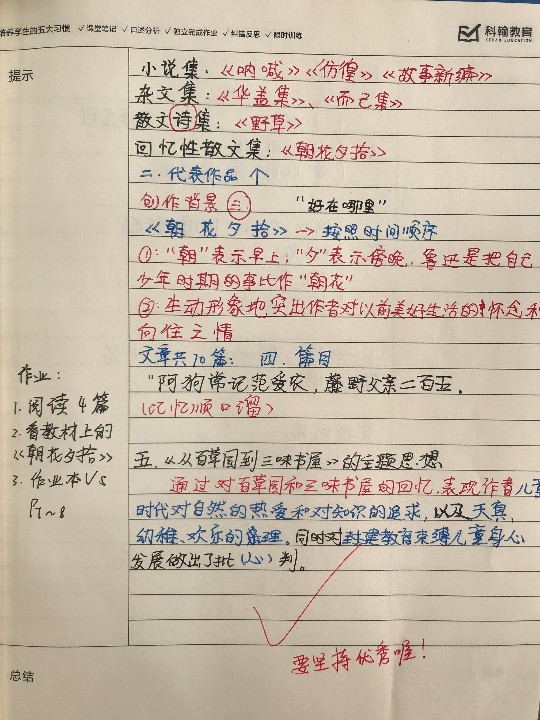 培养学生的五大习惯 √课堂笔记 √口述分析 √独立完成作业 √纠错反思 √限时训练
科翰教育
KEHAN EDUCATION
提示
小说集:《呐喊》《彷徨》《故事新编》
杂文集:《华盖集》、《而已集》
散文诗集:《野草》
回忆性散文集:《朝花夕拾》
二.代表作品 个
创作背景 三 "好在哪里"
《朝花夕拾》→按照时间顺序
①:"朝"表示早上,"夕"表示傍晚,鲁迅是把自己
少年时期的事比作"朝花"
②:生动形象地突出作者对以前美好生活的怀念和
向往之情
文章共10篇: 四.篇目
"阿狗常记范爱农,藤野父亲二百五。
(记忆顺口溜)
作业:
1.阅读4篇
2.看教材上的
《朝花夕拾》
3.作业本V5
P7~8
五.《从百草园到三味书屋》的主题思想
通过对百草园和三味书屋的回忆,表现作者儿童
时代对自然的热爱和对知识的追求,以及天真,
幼稚、欢乐的心理。同时对封建教育束缚儿童身心
发展做出了批(心)判。
要坚持优秀喔!
总结